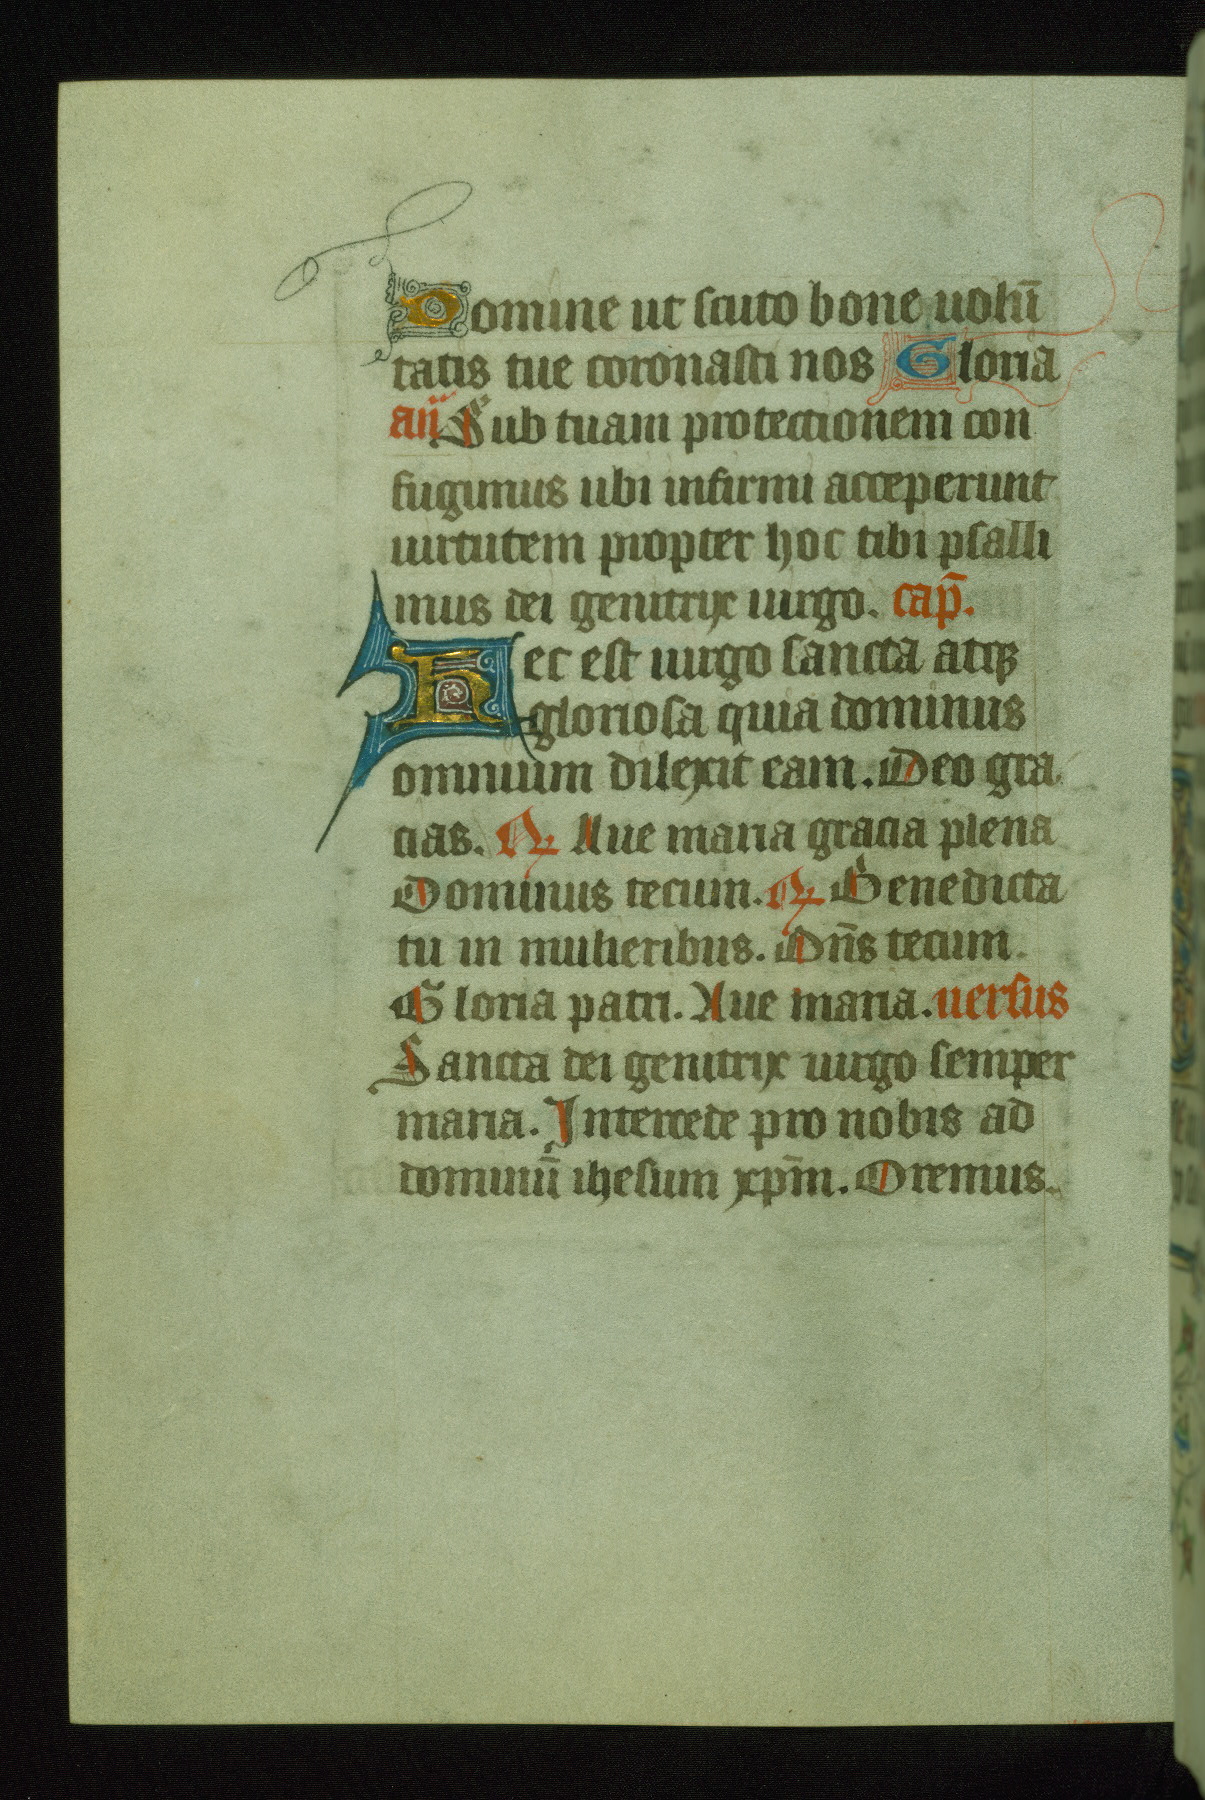 Domine ut scuto bone uolū
tatis tue coronasti nos Gloria
añ Sub tuam protectionem con
fugimus ubi infirmi acceperunt
uirtutem propter hoc tibi psalli
mus dei genitrix uirgo. cap̄.
Hec est uirgo sancta atqꝫ
gloriosa quia dominus
omnium dilexit eam. Deo gra
cias. ℞ Aue maria gracia plena
Dominus tecum. ℞ Benedicta
tu in mulieribus. Dn̄s tecum.
Gloria patri. Aue maria. uersus
Sancta dei genitrix uirgo semper
maria. Intercede pro nobis ad
dominū ihesum xp̄m. Oremus.